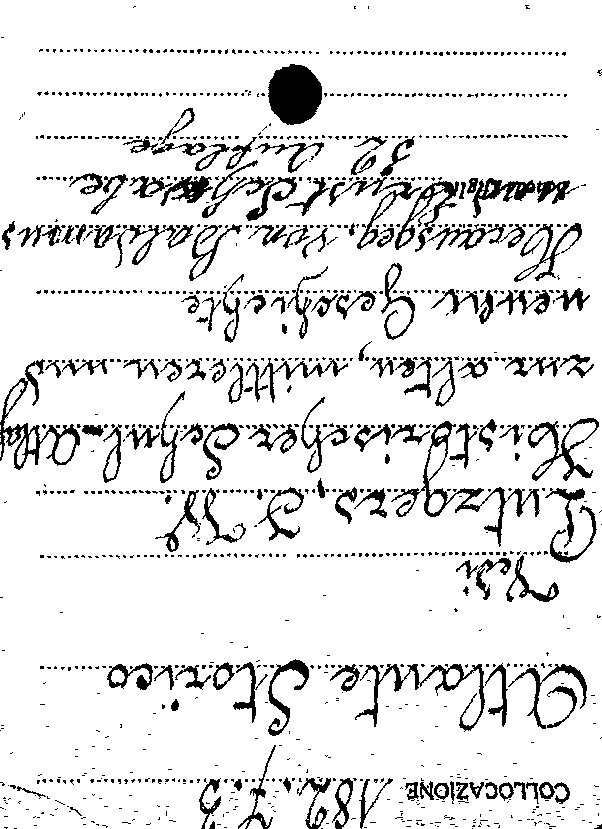 COLLOCAZIONE 182. F. 3
Atlante Storico
Vedi
Putzgers, F. W.
Historischer Schul-Atlas
zur alten, mittleren und
neuen Geschichte
Herausgeg. von Baldamus
und Ernst Schwabe
32 Auflage